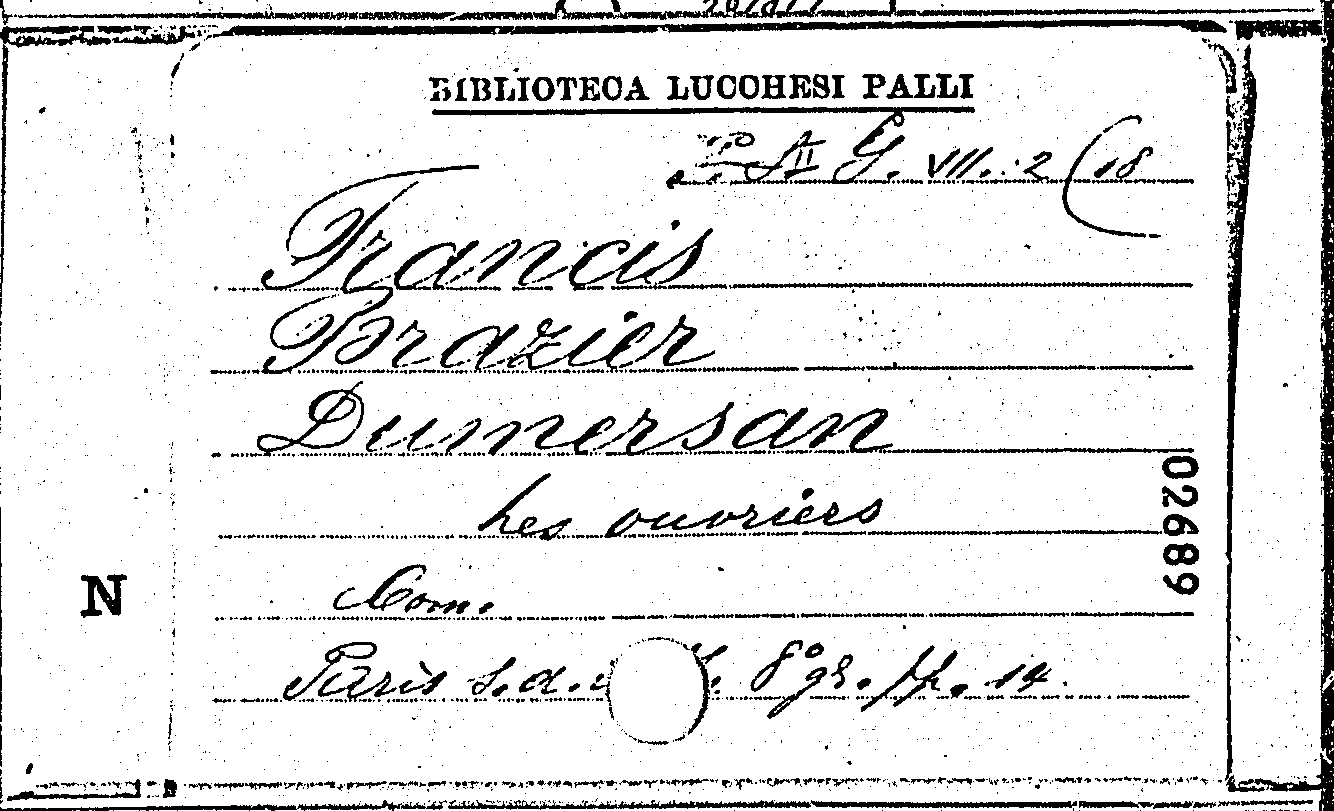 BIBLIOTECA LUCCHESI PALLI
G. VII. 2 (18
Francis
Brazier
Dumersan
Les ouvriers
Com.
Paris s.d. 8° gr. pp. 14.
02689
N